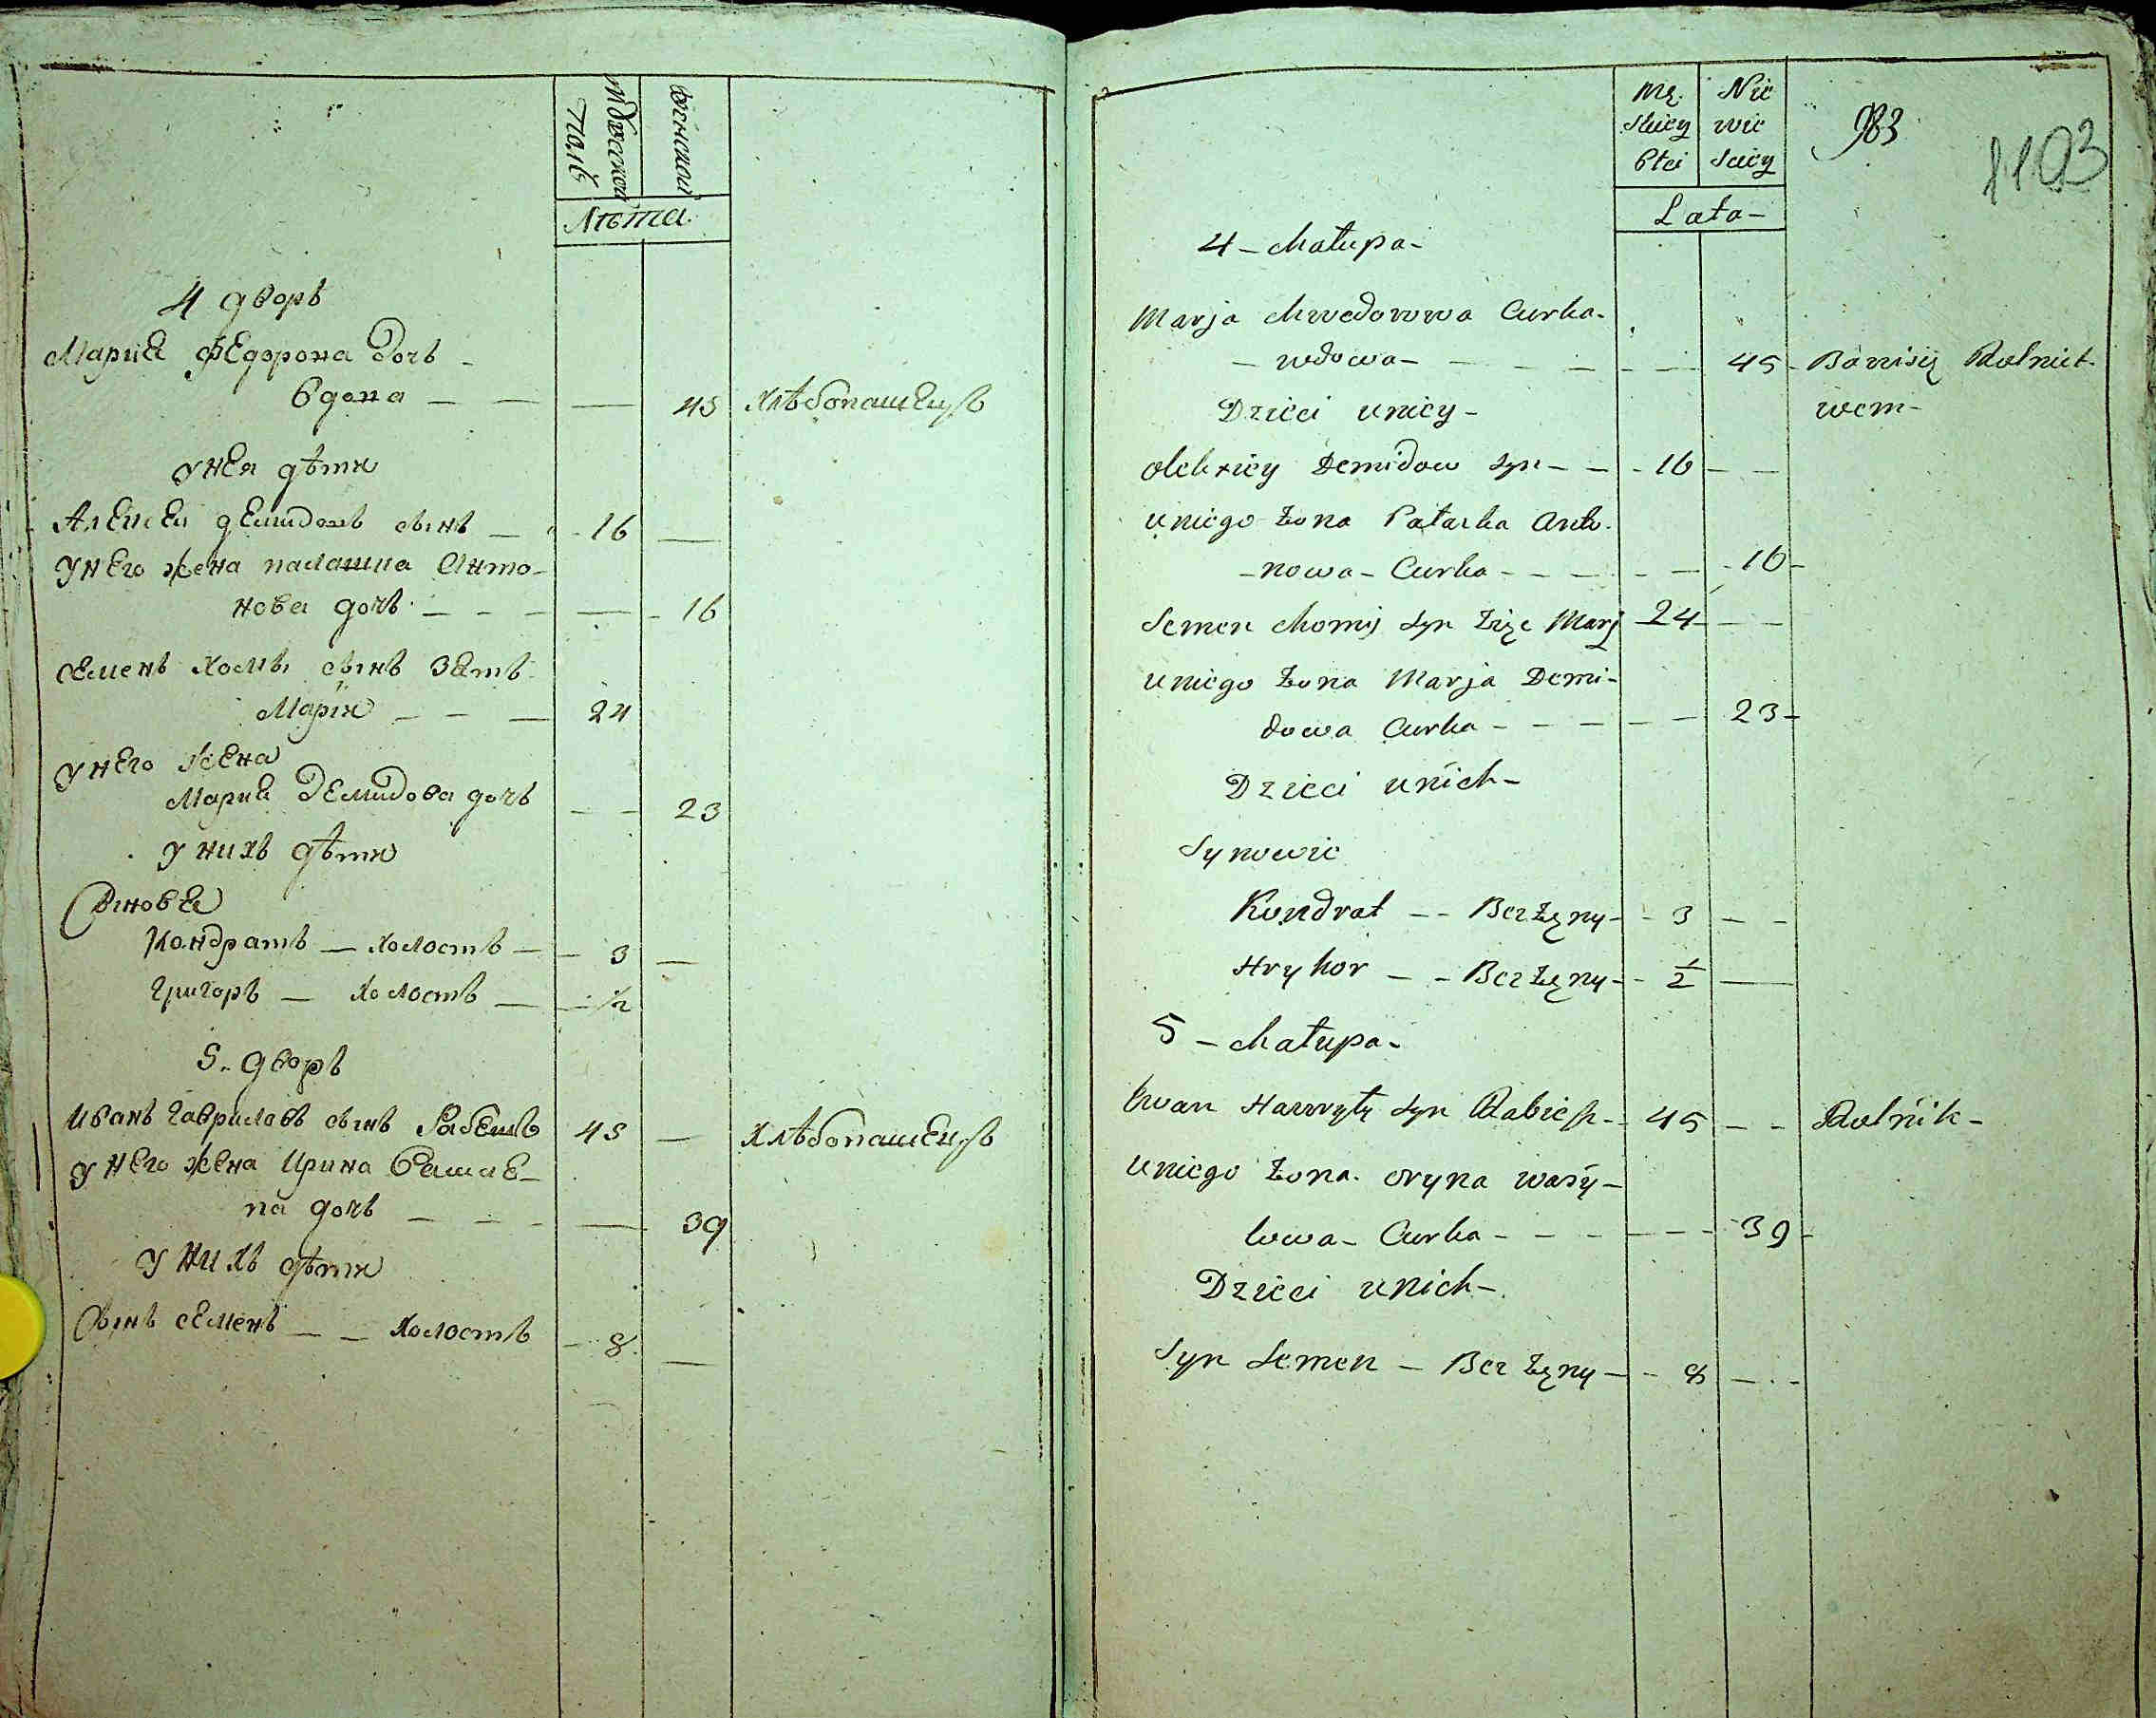 мужескои
полъ
женскои
Лѣта
4 дворъ
Мариѣ Федорова дочь
вдова — — — 45 хлѣбопашецъ
у нея дѣти
Алексеи демидовъ сынъ — 16 —
у него жена палашка Анто-
нова дочь — — — — 16
семенъ хомы сынъ зять
Маріи — — — 24
у него жена
Мария Демидова дочь — — 23
у нихъ дѣти
Сыновея
Кондратъ — холостъ — 3 —
Григоръ — холостъ — 1/2
5. дворъ
Иванъ Гавриловъ сынъ Рабешъ 45 — хлѣбопашецъ
у него жена Ирина
на дочь — — — — 39
у нихъ дѣти
Сынъ семенъ — — холостъ — 8 —
Mę.
skiey
Płci
Nie
wie
sciey
983
1103
Lata —
4 — Chałupa —
Marja Chwedorowa Curka —
— wdowa — — — — 45 — Bawisię Rolnict
wem —
Dzieci uniey —
Olexiey Demidow Syn — — 16 — —
uniego Żona Patarka Anto-
— nowa — Curka — — — — — 16 —
Semen Chomij Syn Zięc Marj 24 — —
uniego Żona Marja Demi-
dowa Curka — — — — — 23 —
Dzieci unich —
Synowie
Kondrat — — Bez Żęny — 3 — —
Hryhor — — Bez Żęny — 1/2 —
5 — Chałupa —
Iwan Hawryły Syn Rabiesz — 45 — — Rolnik —
uniego Żona Oryna Wasy-
lowa — Curka — — — — — 39 —
Dzieci unich —
Syn Semen — Bez Żęny — — 8 — —